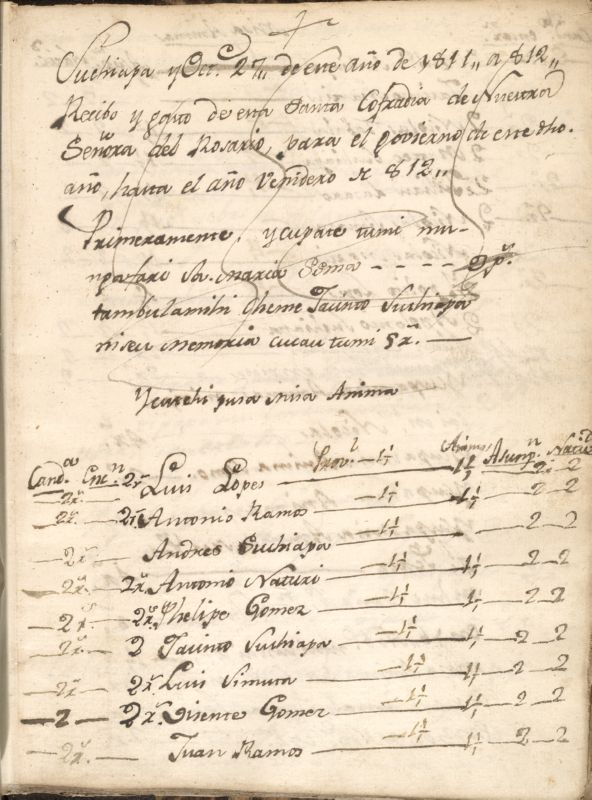 Suchiapa y Oct.e 27,, de este año de 1811,, a 812,,
Recibo y gasto de esta Santa Cofradia de Nuestra
Señora del Rosario, para el govierno de este dho.
año, hasta el año Venidero de 812,,
Primeramente, ycupate tumi mu-
npafari Sa. maria - - - - 2ps.
tambulamihi Jacinto Suchiapa
niseu memoria cucau tumi 5 rs. —
Ycatchi pura misa Anima
Cand.a Enc.n Prov.l — 1½ Animas 1½ Asump.n Nativ.d
2rs. 2rs Luis Lopes — 2 — 2
2rs. — 2rs Antonio Ramos — 1½ — 1½ — 2 — 2
— 2rs. — Andres Suchiapa — 1½ — 1½ — 2 — 2
— 2rs. — 2rs. Antonio Naturi — 1½ — 1½ — 2 2
— 2rs. — 2rs. Phelipe Gomez — 1½ — 1½ — 2 2
— 2rs. — 2 Jacinto Suchiapa — 1½ — 1½ — 2 — 2
— 2rs — 2rs. Luis Simuta — 1½ — 1½ — 2 — 2
— 2 — 2rs. Visente Gomez — 1½ — 1½ — 2 2
— 2rs. — Juan Ramos — 1½ — 1½ — 2 — 2